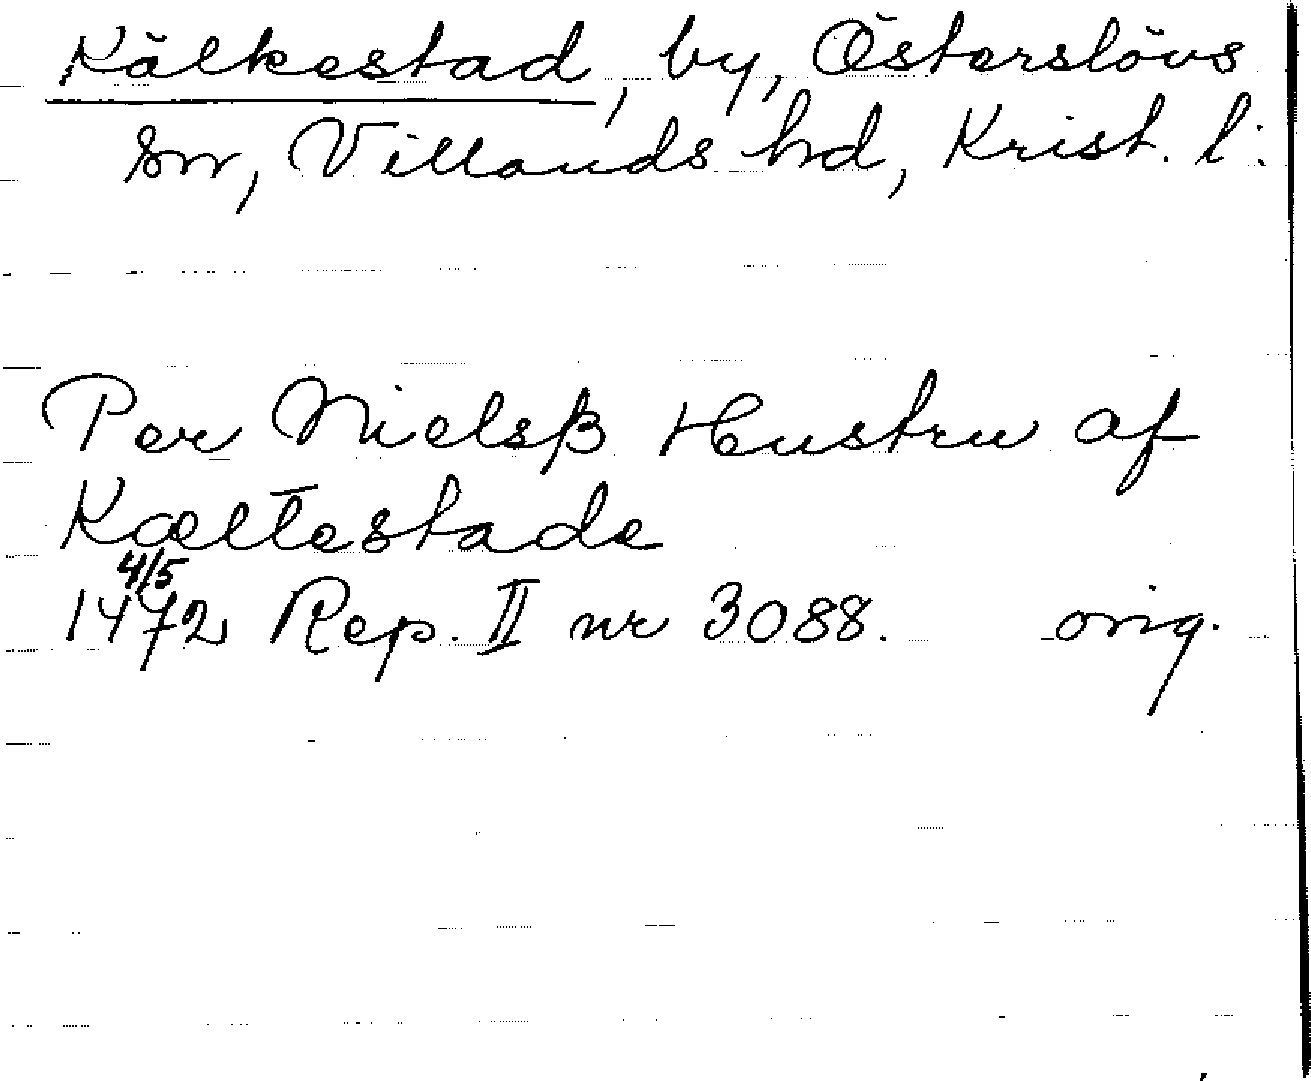 Kälkestad, by, Österslövs
sn, Villands hd, Krist. l:
Per Nielsß Hustru af
Kæltestade
4/5
1472 Rep. II nr 3088. orig.